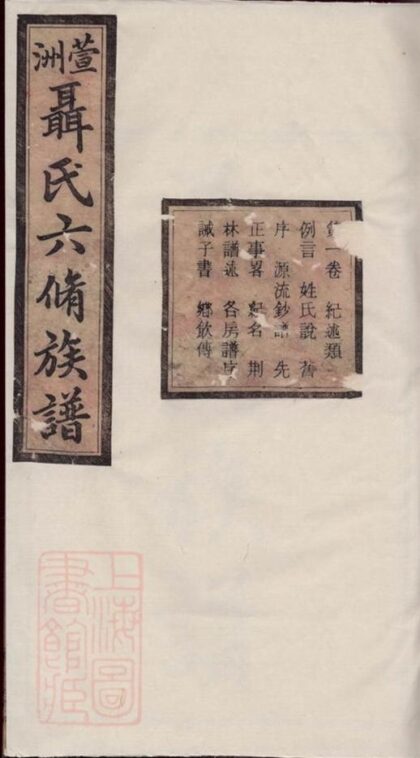 萱洲
聶氏六脩族譜
第一卷 紀述類
例言 姓氏說 舊
序 源流鈔譜 先
正事畧 名 荆
林譜述 各房譜序
誡子書 鄉飲傳
上海圖
書館臧